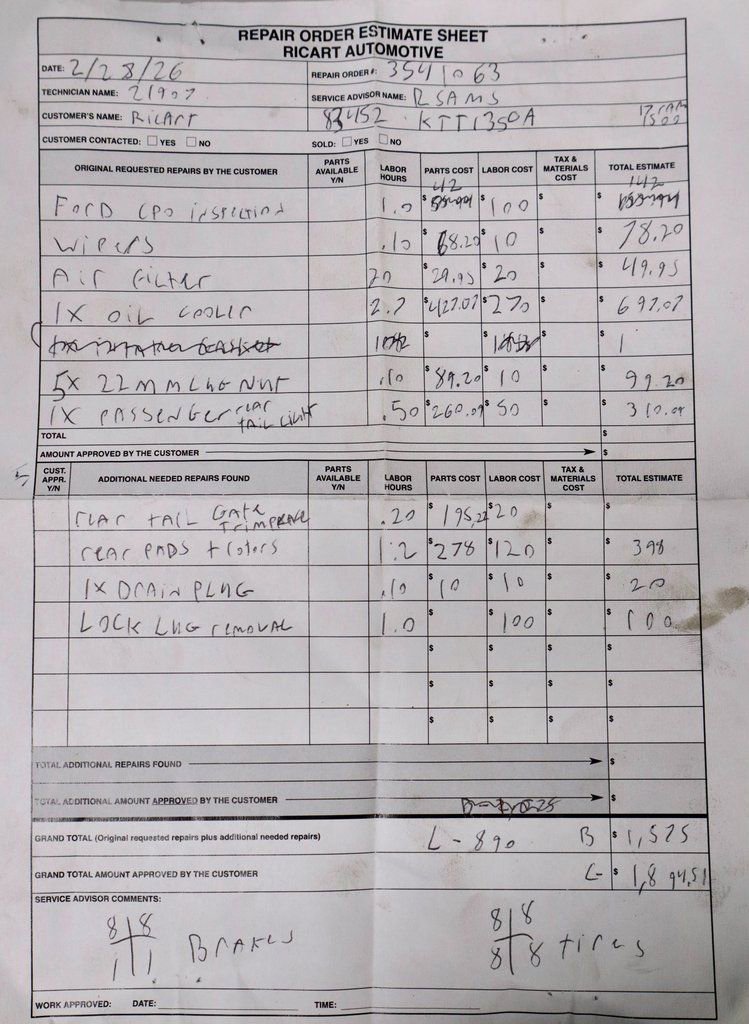 REPAIR ORDER ESTIMATE SHEET
RICART AUTOMOTIVE
DATE: 2/28/26 REPAIR ORDER #: 3541063
TECHNICIAN NAME: 21907 SERVICE ADVISOR NAME: RSAMS
CUSTOMER'S NAME: RICART 83452 KTT1350A 17 RAM 1500
CUSTOMER CONTACTED: YES NO SOLD: YES NO
ORIGINAL REQUESTED REPAIRS BY THE CUSTOMER PARTS AVAILABLE Y/N LABOR HOURS PARTS COST LABOR COST TAX & MATERIALS COST TOTAL ESTIMATE
FORD CPO inspection 1.0 $ 42 $ 100 $ $ 142
WIPERS .10 $ 68.20 $ 10 $ $ 78.20
AIR FILTER 20 $ 29.95 $ 20 $ $ 49.95
1X OIL COOLER 2.7 $ 427.07 $ 270 $ $ 697.07
$ $ $ $
5X 22MM LUG NUT .10 $ 89.20 $ 10 $ $ 99.20
1X PASSENGER rear tail light .50 $ 260.09 $ 50 $ $ 310.09
TOTAL $
AMOUNT APPROVED BY THE CUSTOMER $
CUST. APPR. Y/N ADDITIONAL NEEDED REPAIRS FOUND PARTS AVAILABLE Y/N LABOR HOURS PARTS COST LABOR COST TAX & MATERIALS COST TOTAL ESTIMATE
rear tail Gate .20 $ 195.22 $ 20 $ $
rear PADS + rotors 1.2 $ 278 $ 120 $ $ 398
1X DRAIN PLUG .10 $ 10 $ 10 $ $ 20
LOCK LUG removal 1.0 $ $ 100 $ $ 100
$ $ $ $
$ $ $ $
$ $ $ $
TOTAL ADDITIONAL REPAIRS FOUND $
TOTAL ADDITIONAL AMOUNT APPROVED BY THE CUSTOMER $
GRAND TOTAL (Original requested repairs plus additional needed repairs) L - 890 B $ 1,525
GRAND TOTAL AMOUNT APPROVED BY THE CUSTOMER L- $ 1,894.51
SERVICE ADVISOR COMMENTS:
8 8 8 8
1 1 BRAKES 8 8 tires
WORK APPROVED: DATE: TIME: